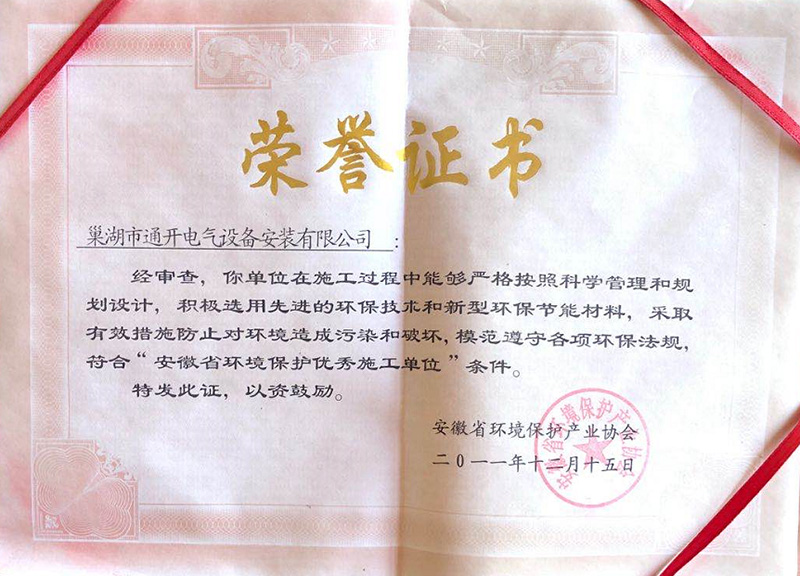 荣誉证书
巢湖市通开电气设备安装有限公司：
经审查，你单位在施工过程中能够严格按照科学管理和规
划设计，积极选用先进的环保技术和新型环保节能材料，采取
有效措施防止对环境造成污染和破坏，模范遵守各项环保法规，
符合“安徽省环境保护优秀施工单位”条件。
特发此证，以资鼓励。
安徽省环境保护产业协会
二〇一一年十二月十五日
安徽省环境保护产业协会